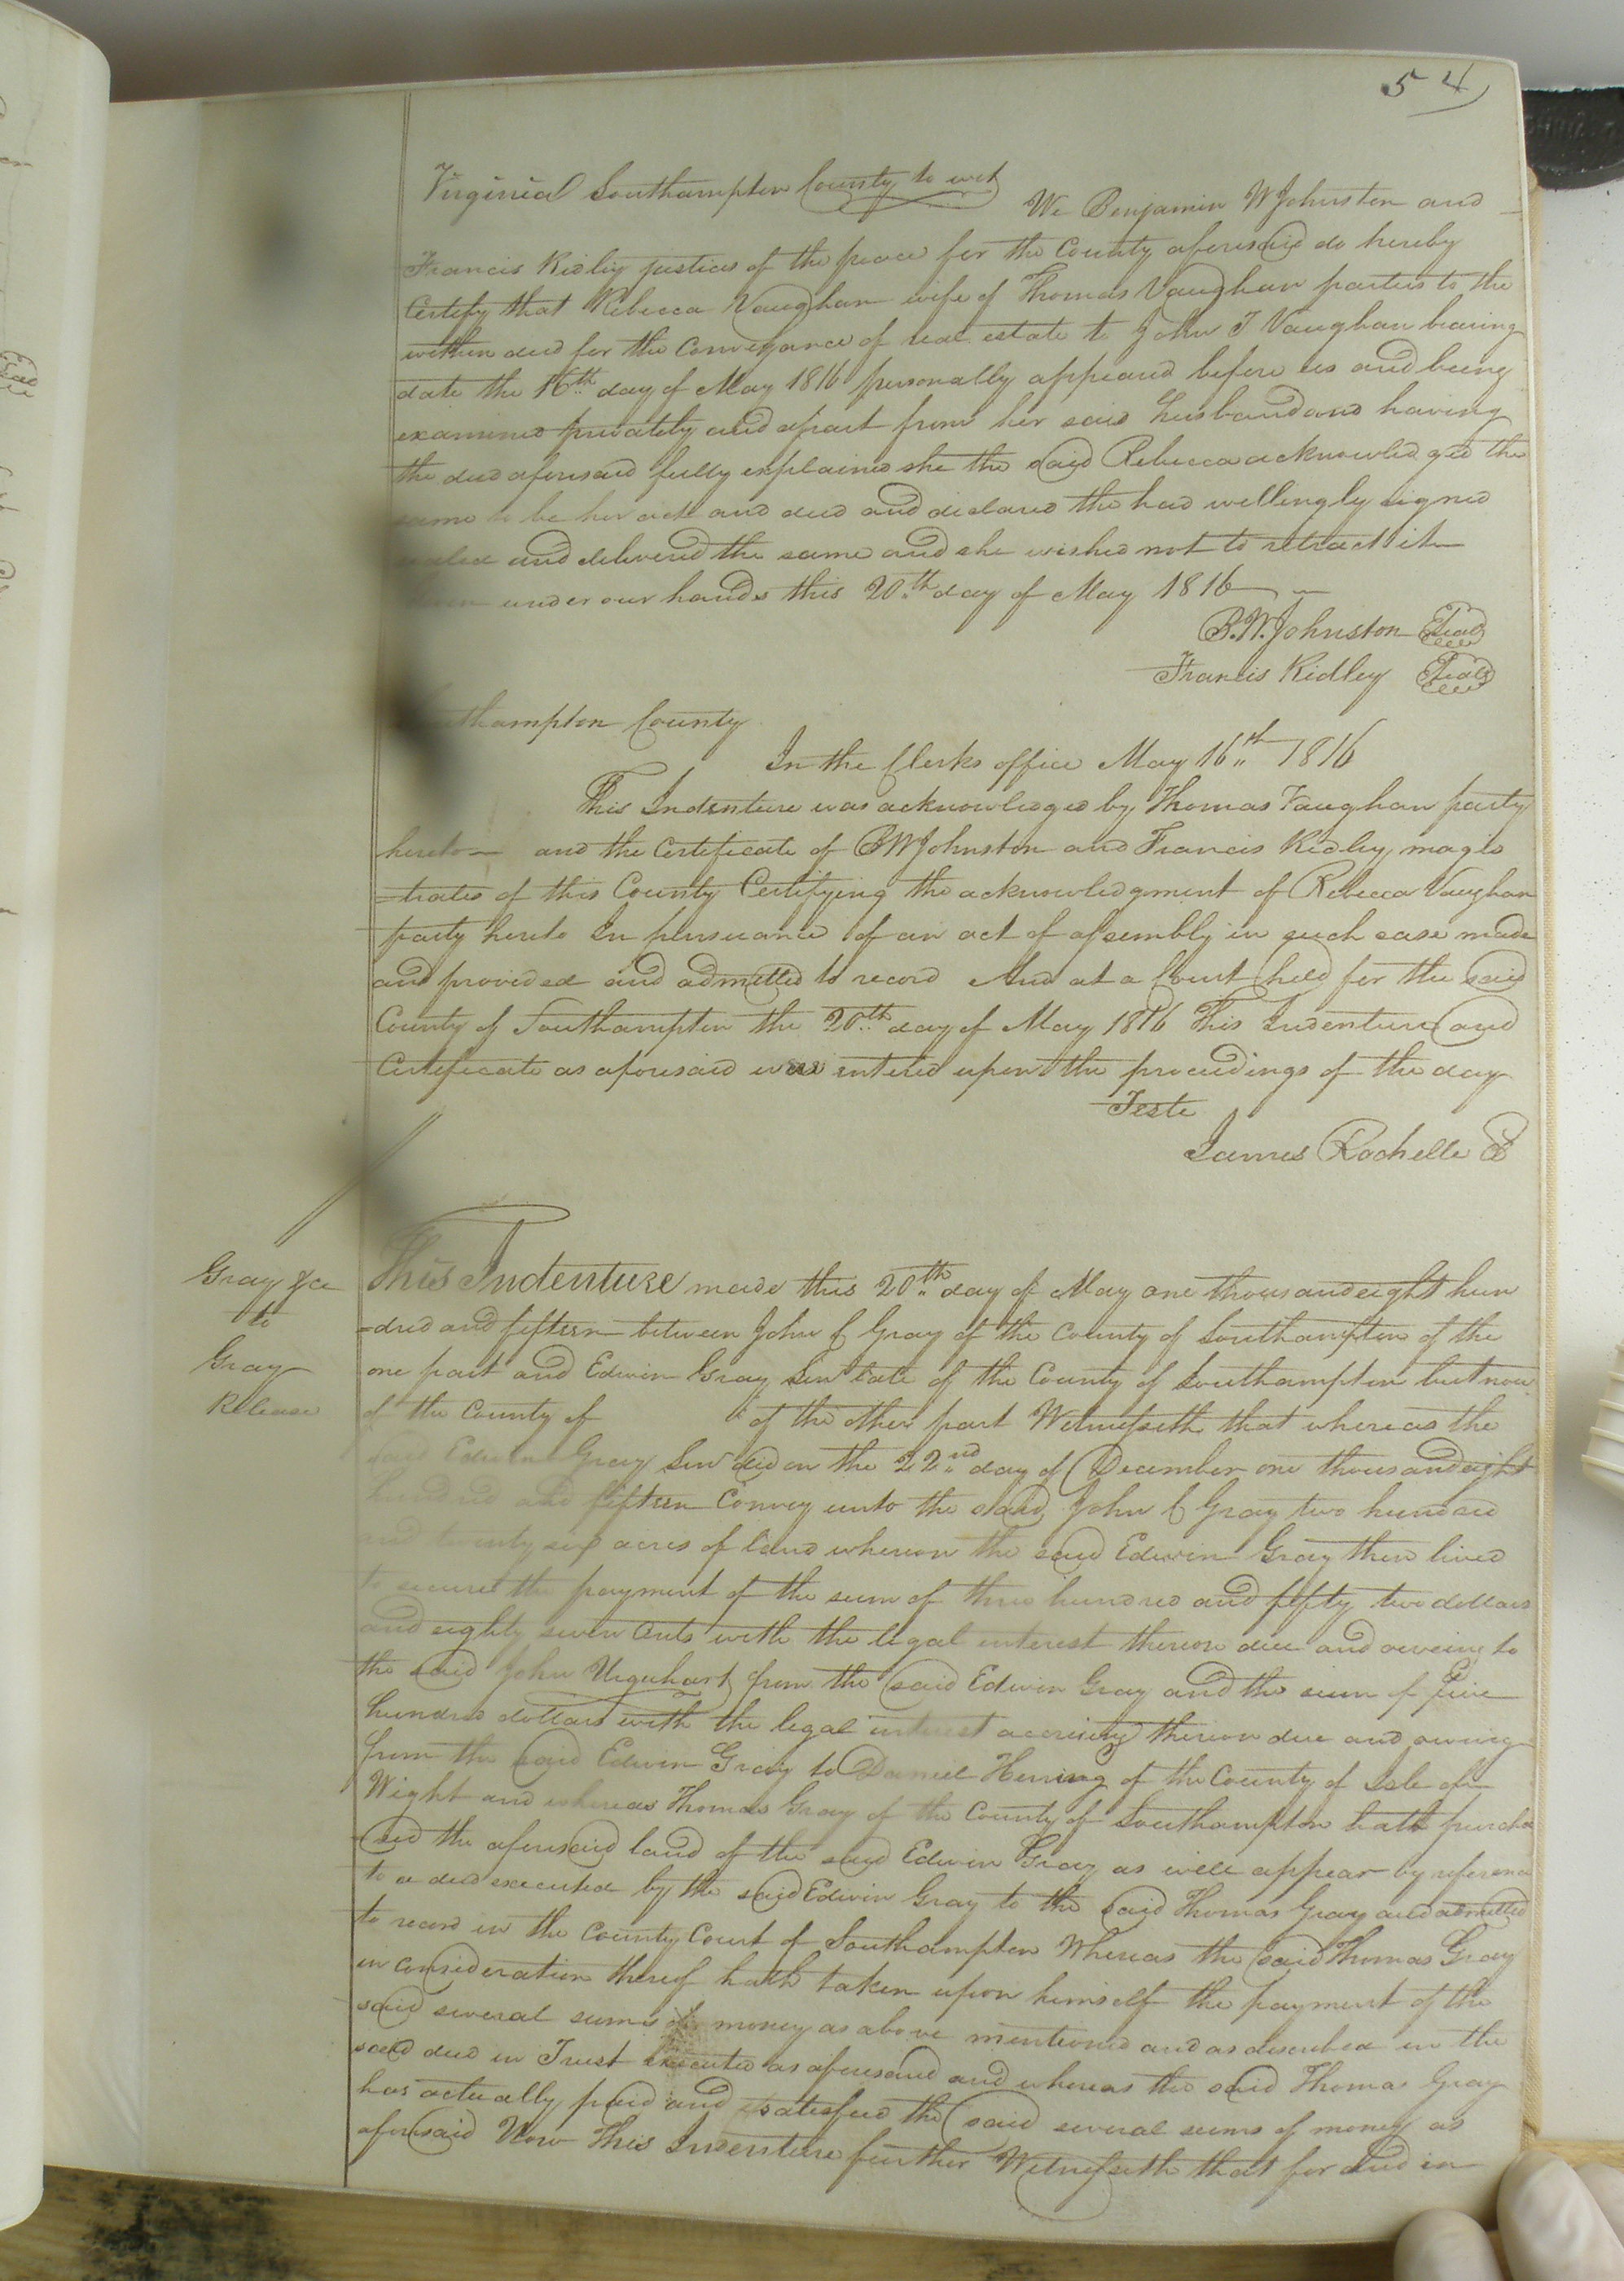 54
Virginia Southampton County to wit
We Benjamin W Johnston and
Francis Ridley justices of the peace for the County aforesaid do hereby
Certify that Rebecca Vaughan wife of Thomas Vaughan parties to the
within deed for the Conveyance of real estate to John T Vaughan bearing
date the 16th day of May 1816 personally appeared before us and being
examined privately and apart from her said husband and having
the deed aforesaid fully explained she the said Rebecca acknowledged the
same to be her act and deed and declared the had willingly signed
sealed and delivered the same and she wished not to retract it
under our hands this 20th day of May 1816
B.W. Johnston Seal
Francis Ridley Seal
Southampton County
In the Clerks office May 16th 1816
This Indenture was acknowledged by Thomas Vaughan party
hereto and the Certificate of BW Johnston and Francis Ridley magis
=trates of this County Certifying the acknowledgment of Rebecca Vaughan
party hereto In pursuance of an act of assembly in such case made
and provided and admitted to record And at a Court held for the said
County of Southampton the 20th day of May 1816 This Indenture and
Certificate as aforesaid was entered upon the proceedings of the day
Teste
James Rochelle
Gray &c
to
Gray
Release
This Indenture made this 20th day of May one thousand eight hun
=dred and fifteen between John C Gray of the County of Southampton of the
one part and Edwin Gray Senr late of the County of Southampton but now
of the County of of the other part Witnesseth that whereas the
said Edwin Gray Senr did on the 22nd day of December one thousand eight
hundred and fifteen Convey unto the said John C Gray two hundred
and twenty six acres of land whereon the said Edwin Gray then lived
to secure the payment of the sum of three hundred and fifty two dollars
and eighty seven Cents with the legal interest thereon due and oweing to
the said John Urquhart from the said Edwin Gray and the sum of five
hundred dollars with the legal interest accruing thereon due and owing
from the said Edwin Gray to Daniel Herring of the County of Isle of
Wight and whereas Thomas Gray of the County of Southampton hath purcha
sed the aforesaid land of the said Edwin Gray as will appear by reference
to a deed executed by the said Edwin Gray to the said Thomas Gray and admitted
to record in the County Court of Southampton Whereas the said Thomas Gray
in consideration thereof hath taken upon himself the payment of the
said several sums of money as above mentioned and as described in the
said deed in Trust executed as aforesaid and whereas the said Thomas Gray
has actually paid and satisfied the said several sums of money as
aforesaid Now This Indenture further Witnesseth that for and in